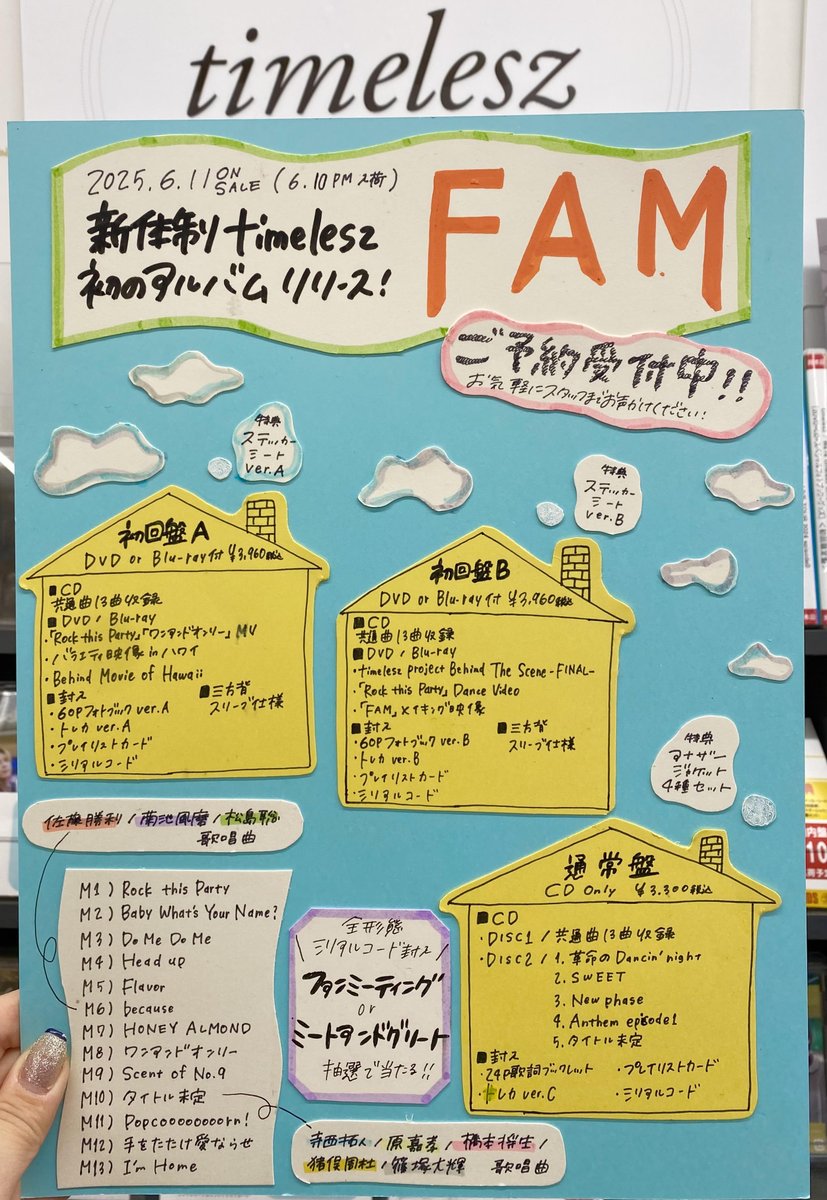 timelesz
2025.6.11 ON SALE (6.10 PM入荷)
新体制timelesz
初のアルバムリリース!
FAM
ご予約受付中!!
お気軽にスタッフまでお声がけください!
特典
ステッカー
シート
ver.A
特典
ステッカー
シート
ver.B
初回盤A
DVD or Blu-ray付 ¥3,960税込
■CD
共通曲13曲収録
■DVD / Blu-ray
・「Rock this Party」「ワンアンドオンリー」MV
・バラエティ映像 in ハワイ
・Behind Movie of Hawaii
■封入
・60Pフォトブック ver.A
・トレカ ver.A
・プレイリストカード
・シリアルコード
■三方背
スリーブ仕様
初回盤B
DVD or Blu-ray付 ¥3,960税込
■CD
共通曲13曲収録
■DVD / Blu-ray
・timelesz project Behind The Scene -FINAL-
・「Rock this Party」Dance Video
・「FAM」メイキング映像
■封入
・60Pフォトブック ver.B
・トレカ ver.B
・プレイリストカード
・シリアルコード
■三方背
スリーブ仕様
特典
アナザー
ジャケット
4種セット
佐藤勝利/菊池風磨/松島聡
歌唱曲
M1) Rock this Party
M2) Baby What's Your Name?
M3) Do Me Do Me
M4) Head up
M5) Flavor
M6) because
M7) HONEY ALMOND
M8) ワンアンドオンリー
M9) Scent of No.9
M10) タイトル未定
M11) Popcoooooooorn!
M12) 手をたたけ愛ならせ
M13) I'm Home
全形態
シリアルコード封入
ファンミーティング
or
ミートアンドグリート
抽選で当たる!!
通常盤
CD Only ¥3,300税込
■CD
・DISC1 / 共通曲13曲収録
・DISC2 / 1. 革命のDancin' night
2. SWEET
3. New phase
4. Anthem episode1
5. タイトル未定
■封入
・24P歌詞ブックレット
・トレカ ver.C
・プレイリストカード
・シリアルコード
寺西拓人/原嘉孝/橋本将生/
猪俣周杜/篠塚大輝 歌唱曲